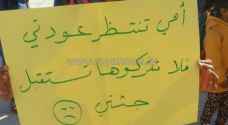 أمي تنتظر عودتي
فلا تتركوها تستقبل
جثتي